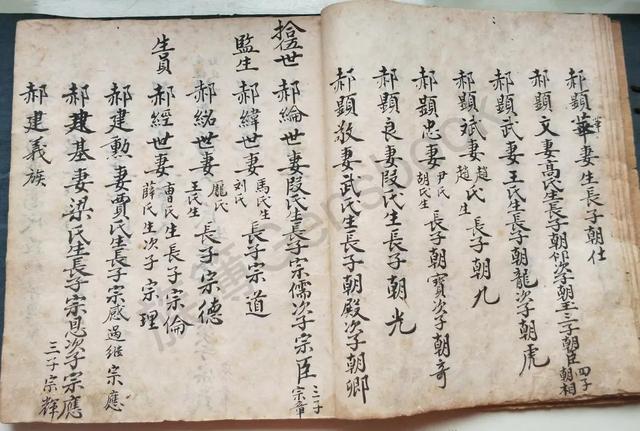 郝顯華妻生長子朝仕
郝顯文妻高氏生長子朝 次子朝玉三子朝臣四子朝相
郝顯武妻王氏生長子朝龍次子朝虎
郝顯斌妻趙氏妻趙氏生長子朝九
郝顯忠妻尹氏胡氏生長子朝寶次子朝奇
郝顯良妻段氏生長子朝光
郝顯敎妻武氏生長子朝殿次子朝卿
拾伍世 郝綸世妻段氏生長子宗儒次子宗臣三子宗章
監生 郝緯世妻馬氏生劉氏長子宗道
郝紹世妻龐氏王氏生長子宗德
生員 郝經世妻曹氏生長子宗倫薛氏生次子宗理
郝建勲妻賈氏生長子宗感過繼宗應
郝建基妻梁氏生長子宗恩次子宗應三子宗輝
郝建義族